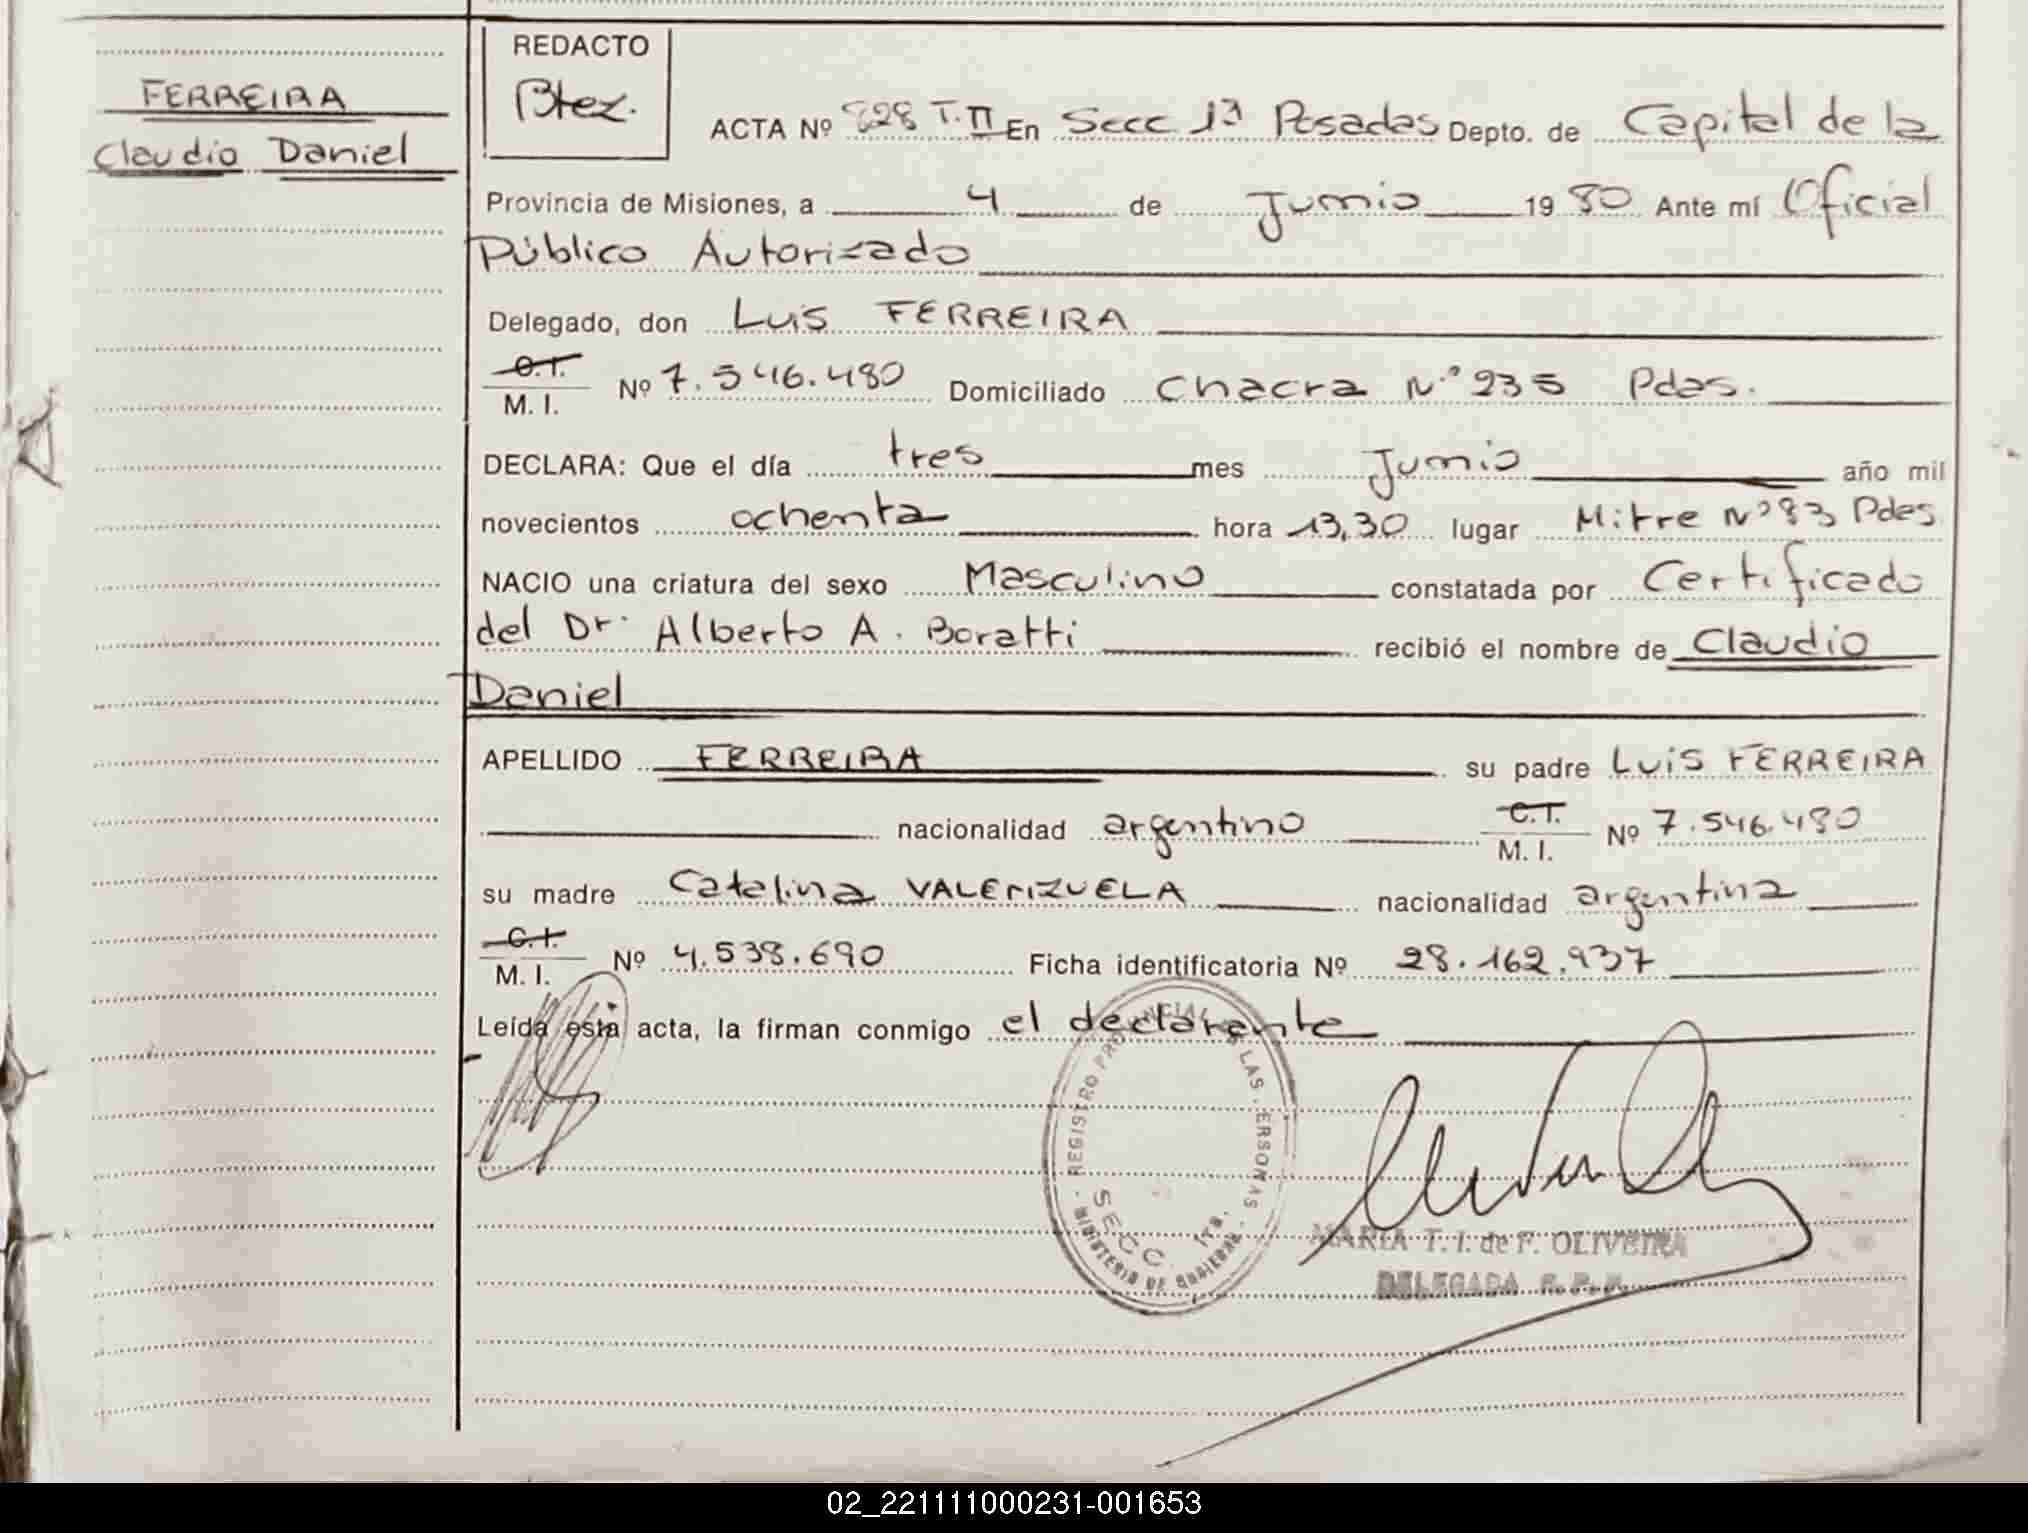 FERREIRA
Claudio Daniel
REDACTO
Btez.
ACTA Nº 828 T.II En Secc 1ª Posadas Depto. de Capital de la
Provincia de Misiones, a 4 de Junio 1980 Ante mí Oficial
Público Autorizado
Delegado, don Luis FERREIRA
C.I.
M. I. Nº 7.546.480 Domiciliado Chacra Nº 235 Pdas.
DECLARA: Que el día tres mes Junio año mil
novecientos ochenta hora 13,30 lugar Mitre Nº 83 Pdas
NACIO una criatura del sexo Masculino constatada por Certificado
del Dr. Alberto A. Boratti recibió el nombre de Claudio
Daniel
APELLIDO FERREIRA su padre Luis FERREIRA
nacionalidad argentino C.I.
M. I. Nº 7.546.480
su madre Catalina VALENZUELA nacionalidad argentina
C.I.
M. I. Nº 4.538.690 Ficha identificatoria Nº 28.162.937
Leída esta acta, la firman conmigo el declarante
REGISTRO PROVINCIAL DE LAS PERSONAS
SECC. 1ra.
MINISTERIO DE GOBIERNO
MARIA T. I. de F. OLIVEIRA
DELEGADA R. P. P.
02_221111000231-001653